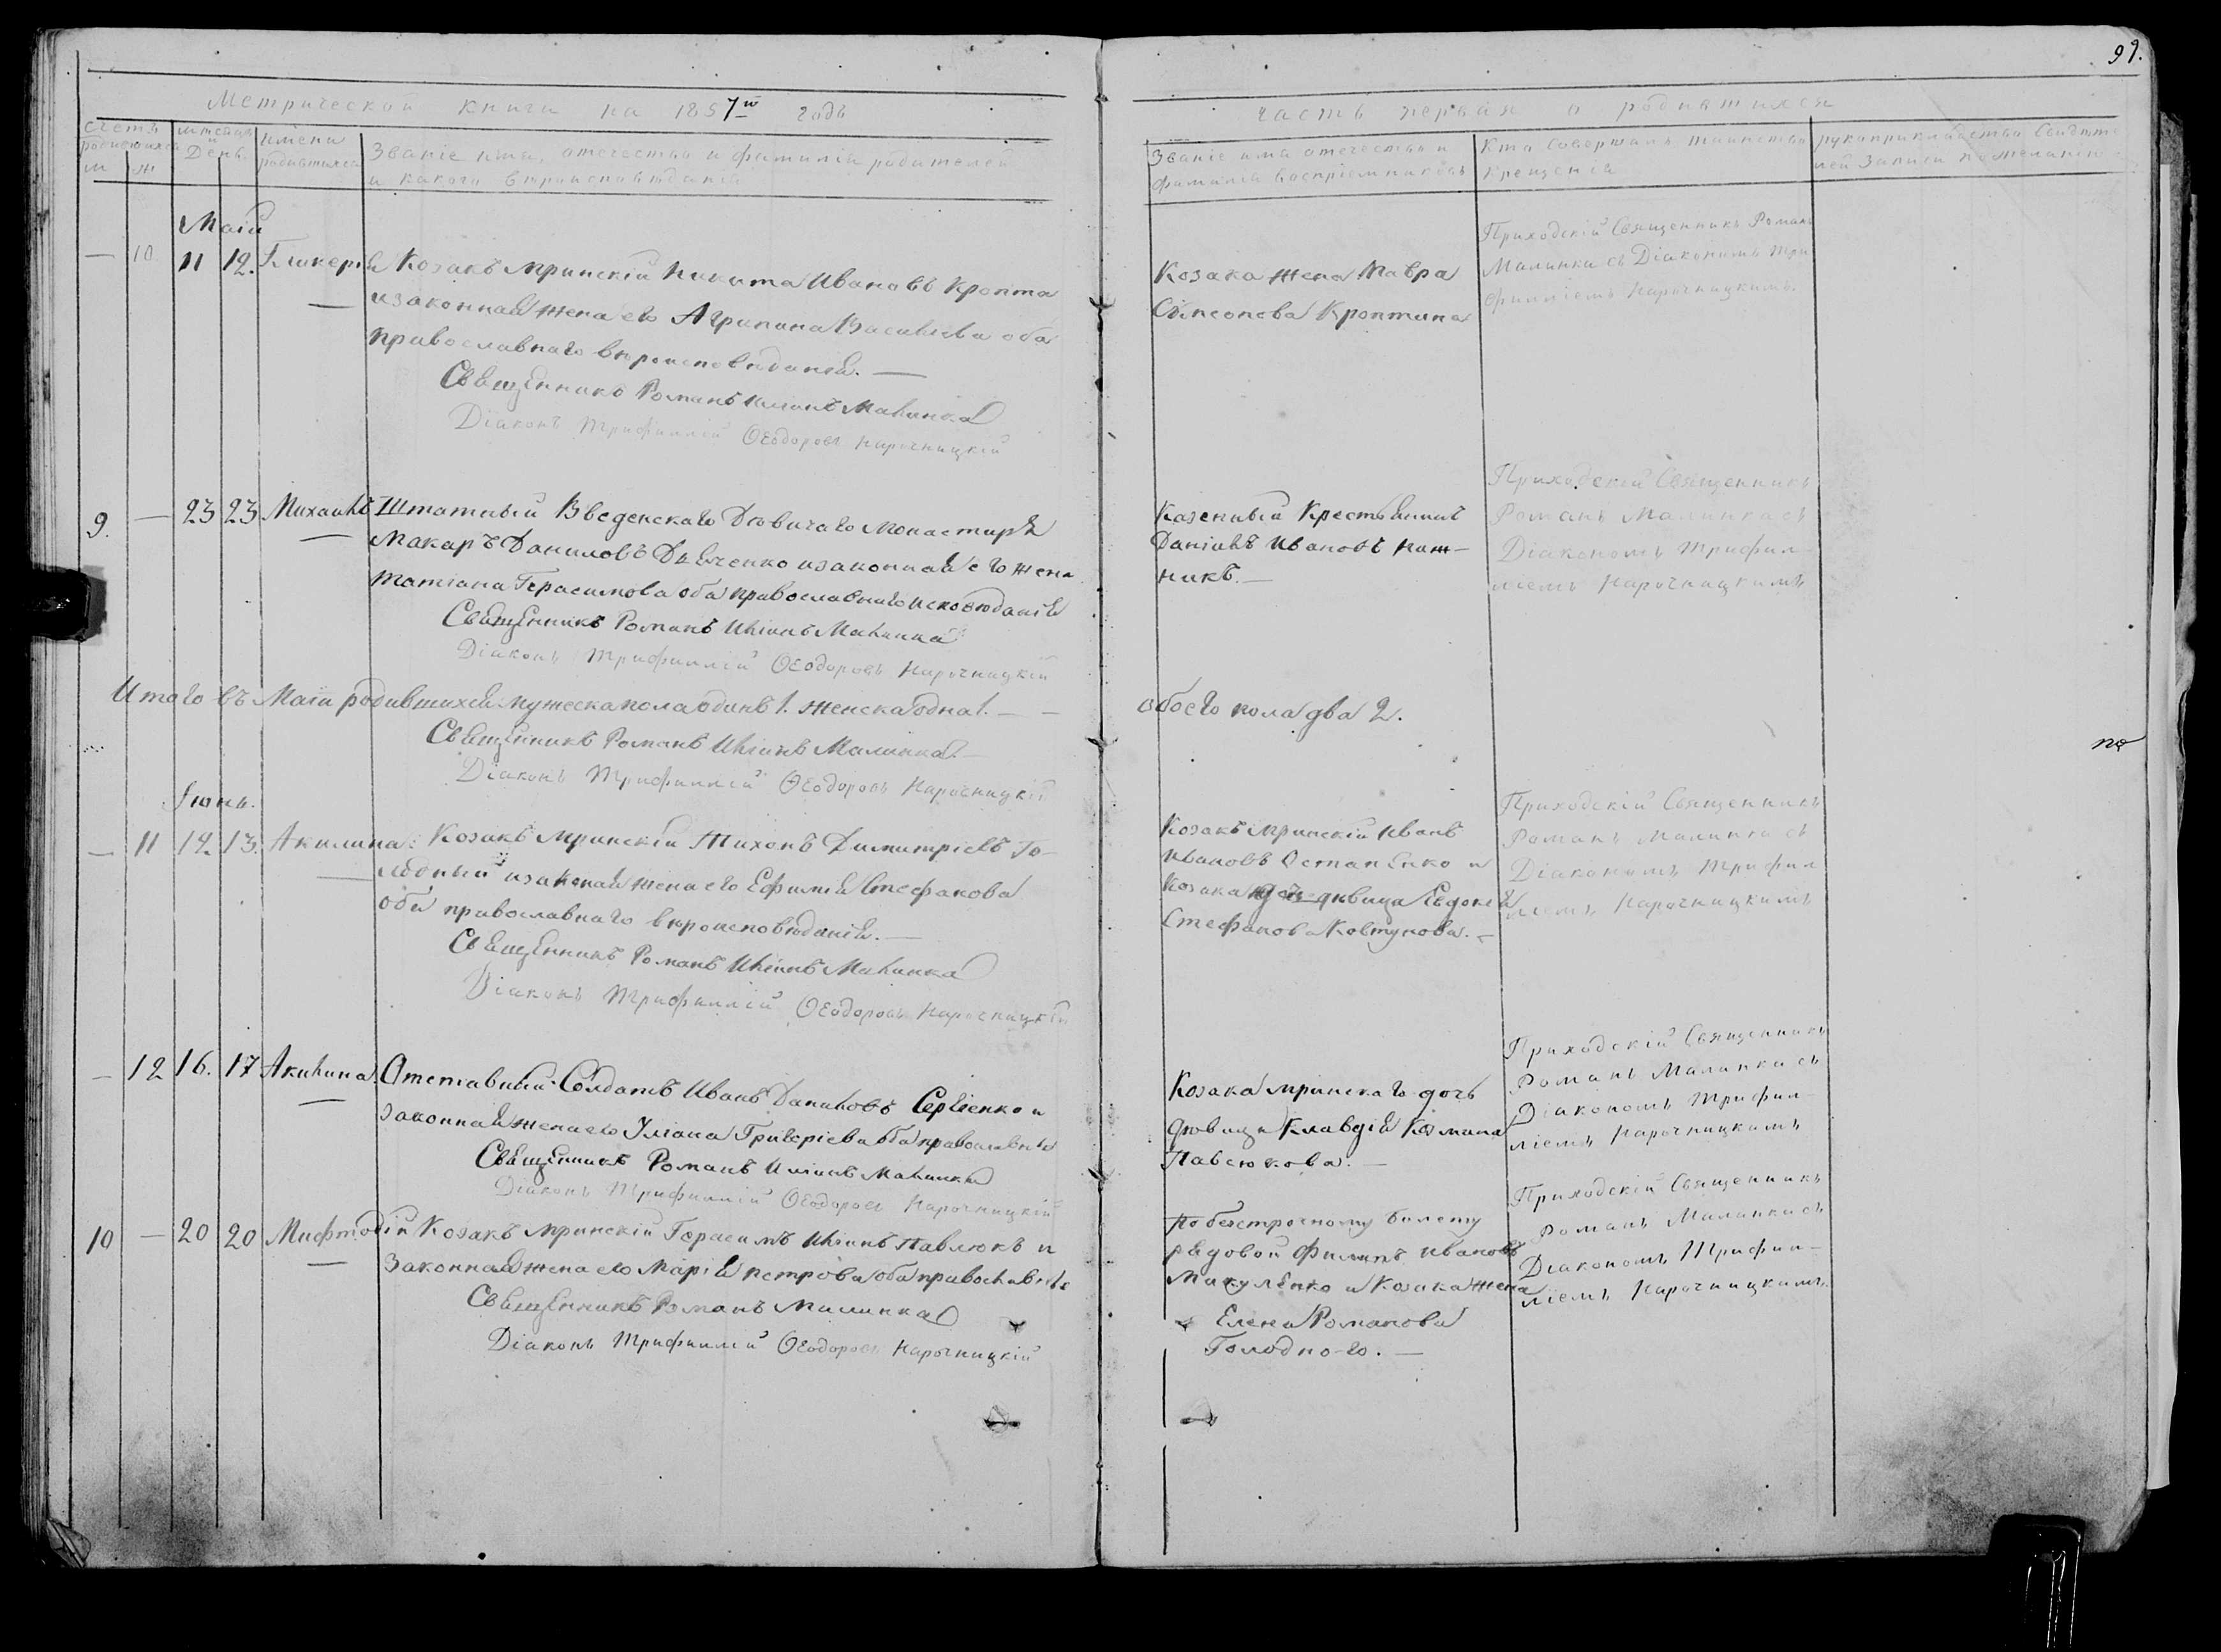 99.
Метрической книги на 1857й годъ
часть первая о родившихся
счетъ родившихся
м ж
мѣсяцъ и День
имена родившихся
Званіе имя, отечество и фамилія родителей
и какого вѣроисповѣданія
Званіе имя отечество и
фамилія воспріемниковъ
Кто совершалъ таинство
крещенія
рукоприкладство свидѣте-
лей записи по желанію
Маій
— 10 11 12. Гликерія Козакъ мринскій Никита Ивановъ Кропта
и законная жена его Агрипина Васильева оба
православнаго вѣроисповѣданія. —
Священникъ Романъ Иліинъ Малинка
Діаконъ Трифиллій Ѳеодоровъ Нарочницкій
Козака жена Мавра
Сѵмеонова Кроптина
Приходскій Священникъ Романъ
Малинка съ Діакономъ Три
филліемъ Нарочницкимъ.
9. — 23 23 Михаилъ Штатный Введенскаго Дѣвичаго Монастиря
Макаръ Даниловъ Дяченко и законная его жена
Татіана Герасимова оба православнаго исповѣданія
Священникъ Романъ Иліинъ Малинка
Діаконъ Трифиллій Ѳеодоровъ Нарочницкій
Казенный Крестьянинъ
Даніилъ Ивановъ
никъ. —
Приходскій Священникъ
Романъ Малинка съ
Діакономъ Трифил-
ліемъ Нарочницкимъ
Итого въ Маіи родившихся мужеска пола одинъ 1. женска одна 1. — —
обоего пола два 2.
Священникъ Романъ Иліинъ Малинка. —
Діаконъ Трифиллій Ѳеодоровъ Нарочницкій
по
Іюнь.
— 11 12 13. Акилина. Козакъ мринскій Тихонъ Димитріевъ Го-
лодный и законая жена его Ефимія Стефанова
оба православнаго вѣроисповѣданія. —
Священникъ Романъ Иліинъ Малинка
Діаконъ Трифиллій Ѳеодоровъ Нарочницкій
Козакъ мринскій Иванъ
Ивановъ Остапенко и
Козака дочь дѣвица Евдокія
Стефанова Ковтунова. —
Приходскій Священникъ
Романъ Малинка съ
Діакономъ Трифил
ліемъ Нарочницкимъ
— 12 16. 17 Акилина. Отставный Солдатъ Иванъ Даниловъ Сергіенко и
законная жена его Уліана Григоріева оба православныя
Священникъ Романъ Иліинъ Малинка
Діаконъ Трифиллій Ѳеодоровъ Нарочницкій
Козака мринскаго дочь
дѣвица Клавдія Козмина
Павлюкова. —
Приходскій Священникъ
Романъ Малинка съ
Діакономъ Трифил-
ліемъ Нарочницкимъ
10 — 20 20 Мифтодій Козакъ мринскій Герасимъ Иліинъ Павлюкъ и
законная жена его Марія Петрова оба православныя
Священникъ Романъ Малинка
Діаконъ Трифиллій Ѳеодоровъ Нарочницкій
По безсрочному билету
рядовой Филипъ Ивановъ
Микуленко и Козака жена
Елена Романова
Голодно-го. —
Приходскій Священникъ
Романъ Малинка съ
Діакономъ Трифил-
ліемъ Нарочницкимъ.